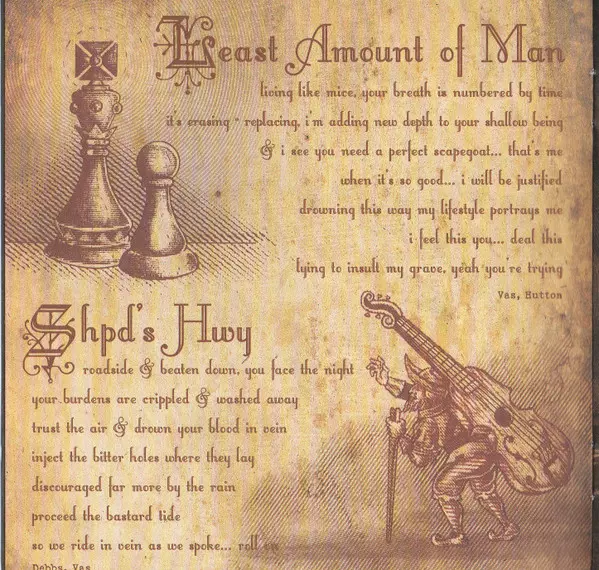 Least Amount of Man
living like mice, your breath is numbered by time
it's erasing - replacing, i'm adding new depth to your shallow being
& i see you need a perfect scapegoat... that's me
when it's so good... i will be justified
drowning this way my lifestyle portrays me
i feel this you... deal this
lying to insult my grave, yeah you're trying
Vas, Hutton
Shpd's Hwy
roadside & beaten down, you face the night
your burdens are crippled & washed away
trust the air & drown your blood in vein
inject the bitter holes where they lay
discouraged far more by the rain
proceed the bastard tide
so we ride in vein as we spoke... roll on
Debbs, Vas